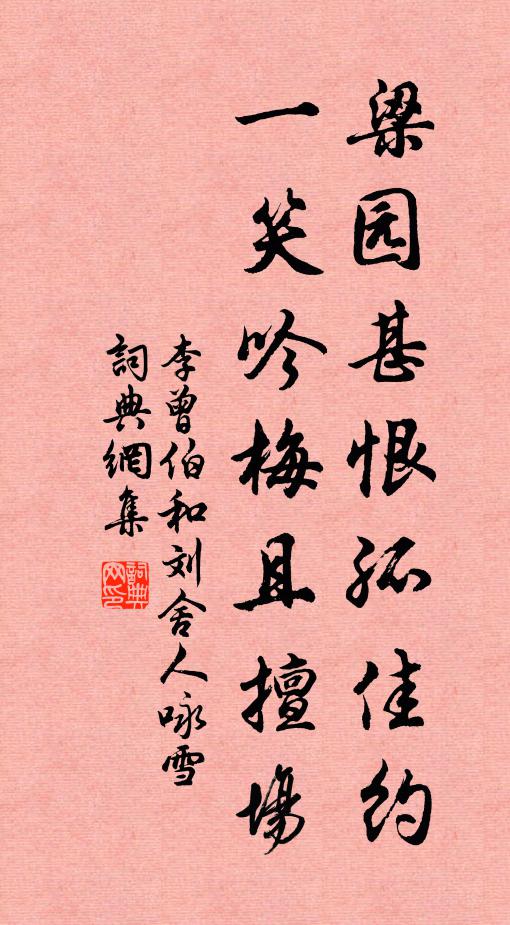 梁园甚恨孤佳约
一笑吟梅且擅場
李曾伯和刘舍人咏雪
詞典網集
詞典网印